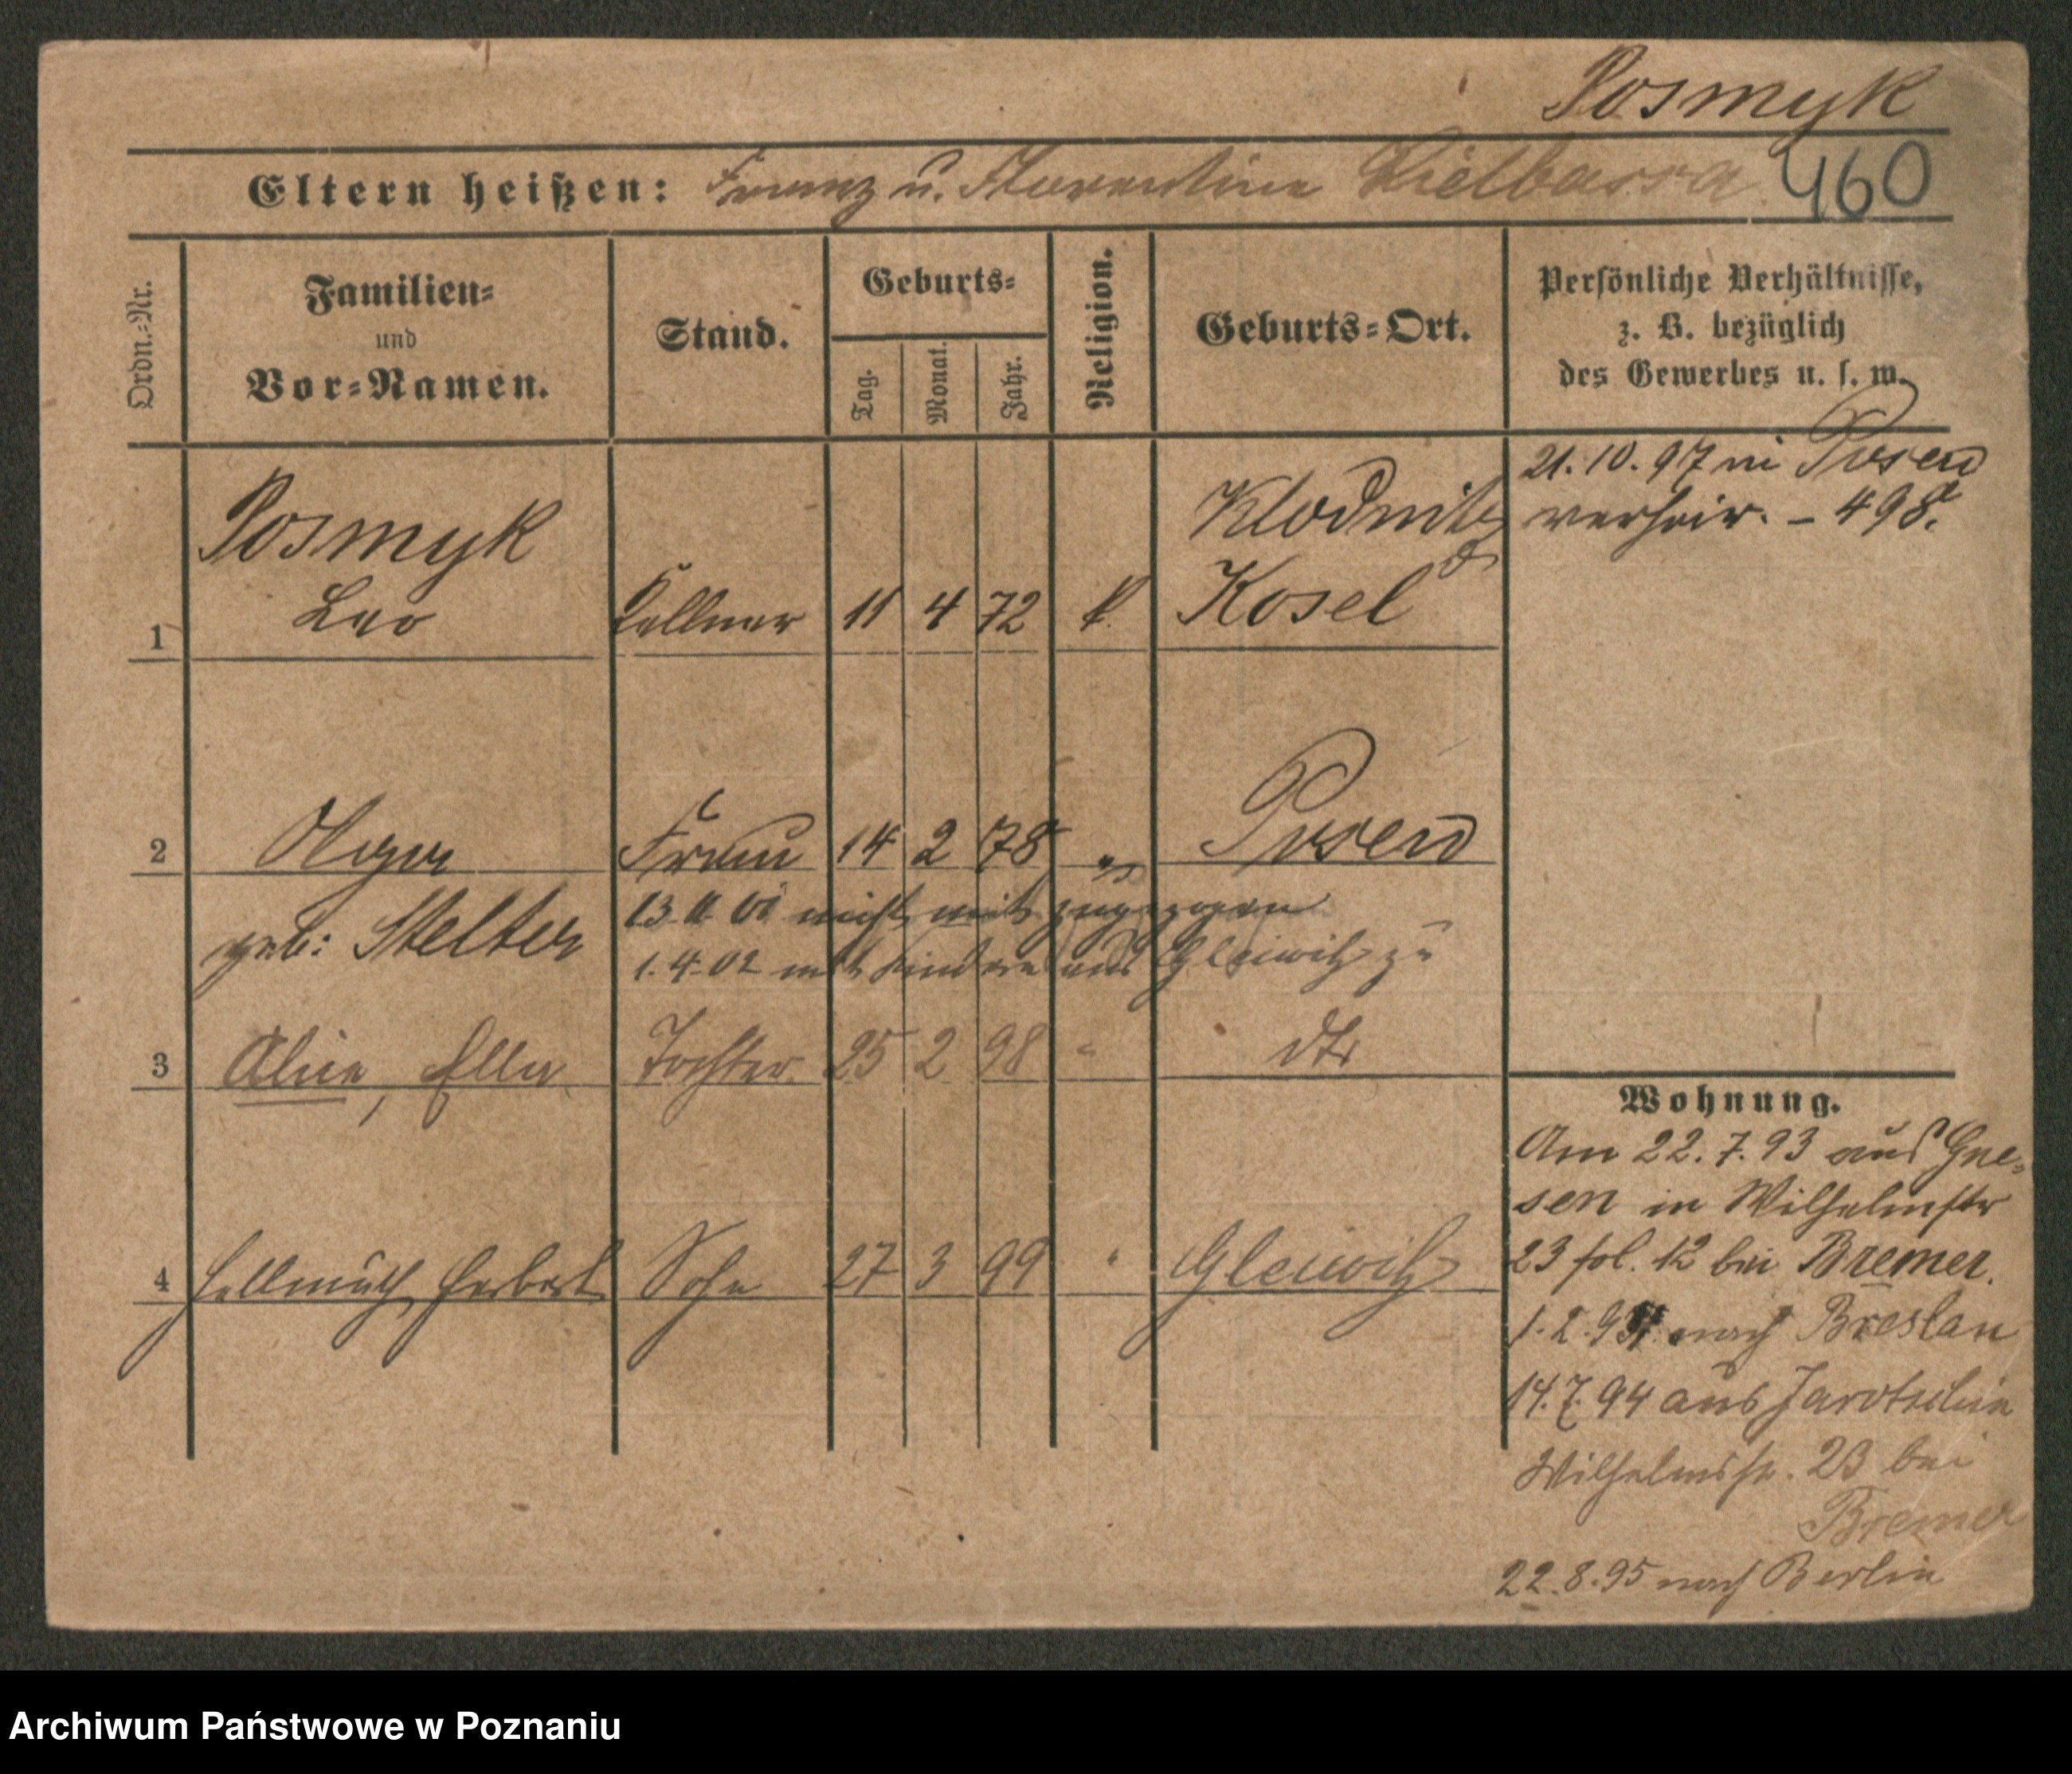 Posmyk
Eltern heißen: Franz u. Florentine Kielbassa 460
Ordn.-Nr.
Familien-
und
Vor-Namen.
Stand.
Geburts-
Tag.
Monat.
Jahr.
Religion.
Geburts-Ort.
Persönliche Verhältnisse,
z. B. bezüglich
des Gewerbes u. s. w.
21. 10. 97 in Posen
verheir. – 498.
Posmyk
Klodnitz
1 Leo Kellner 11 4 72 k. Kosel
2 Olga Frau 14 2 78 " Posen
13 11 01 nicht mit zugezogen
geb: Stelter
1. 4. 02 mit Kindern aus Gleiwitz zu
3 Alice, Ella Tochter 25 2 98 " dto
4 Hellmuth Herbert Sohn 27 3 99 " Gleiwitz
Wohnung.
Am 22. 7. 93 aus Gne-
sen in Wilhelmstr
23 fol. 12 bei Bremer.
1. 2. 94 nach Breslau
14. 7. 94 aus Jarotschin
Wilhelmstr. 23 bei
Bremer
22. 8. 95 nach Berlin
Archiwum Państwowe w Poznaniu